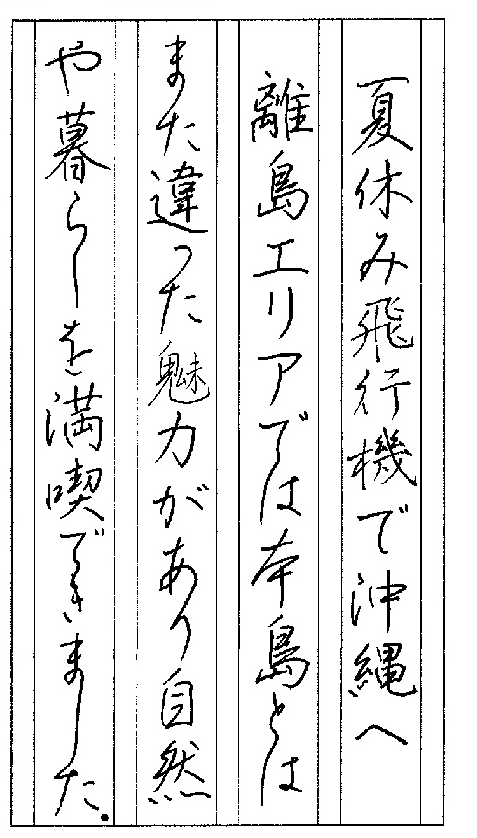 夏休み飛行機で沖縄へ
離島エリアでは本島とは
また違った魅力があり自然
や暮らしを満喫できました.